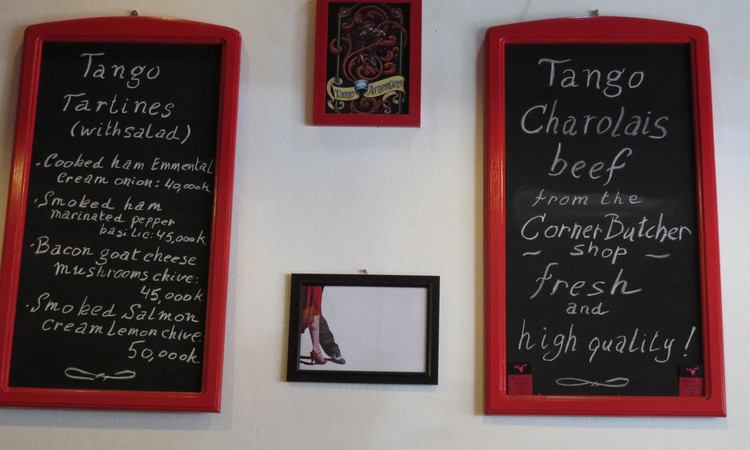 Tango
Tartines
(with salad)
. Cooked ham Emmental
cream onion: 40,000k
. Smoked ham
marinated pepper
basilic: 45,000k
. Bacon goat cheese
mushrooms chive:
45,000k
. Smoked Salmon
cream Lemon chive:
50,000k.
Tango Argentino
Tango
Charolais
beef
from the
Corner Butcher
~ shop ~
fresh
and
high quality!